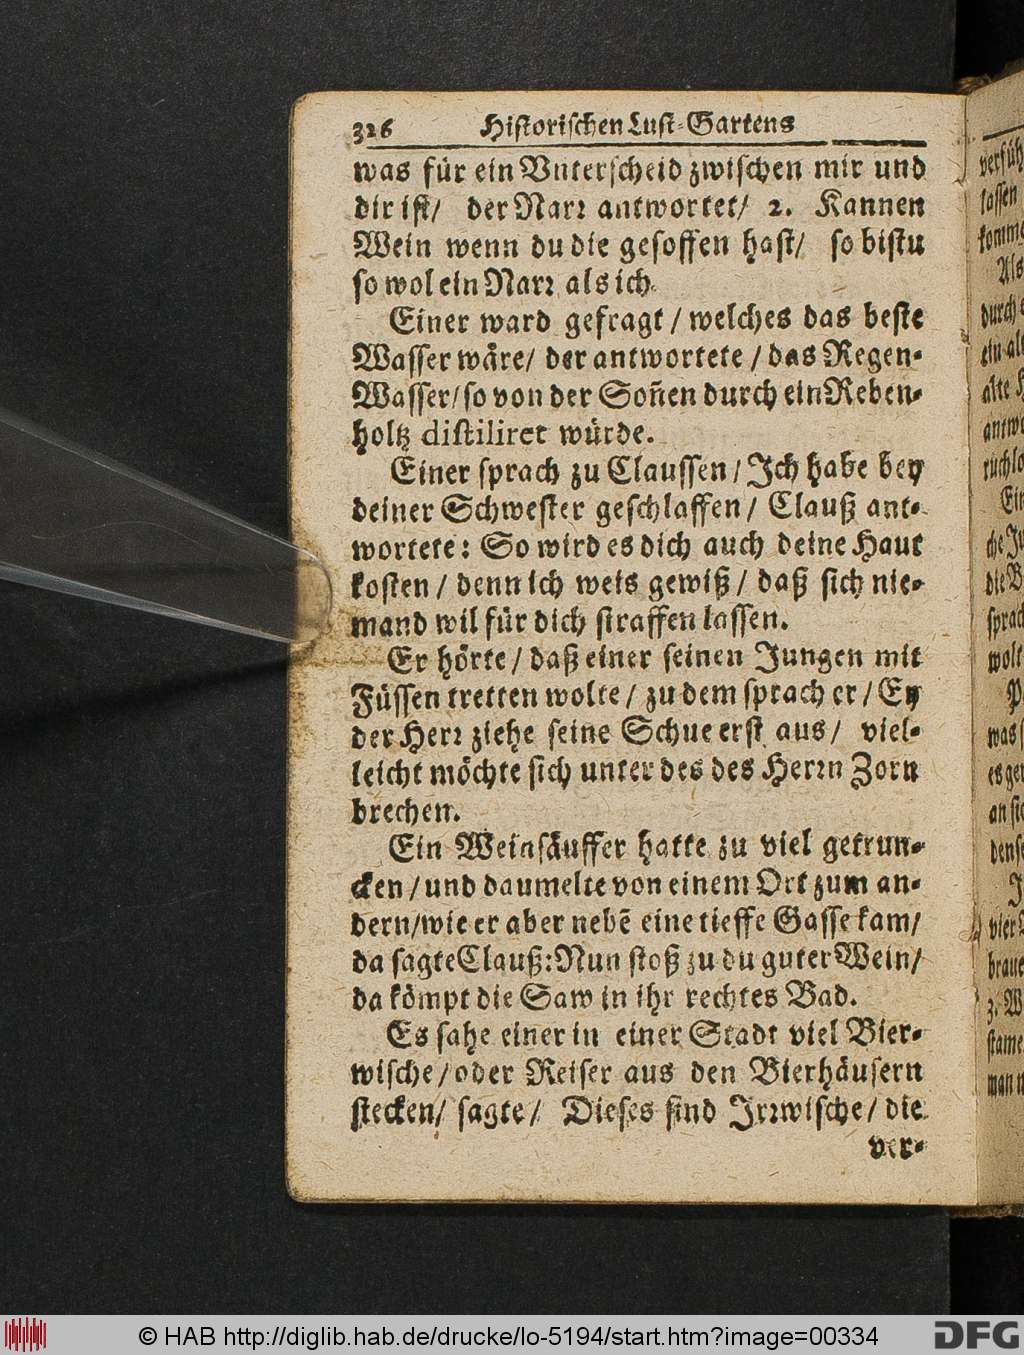 326 Historischen Lust-Gartens
was für ein Vnterscheid zwischen mir und
dir ist/ der Narr antwortet/ 2. Kannen
Wein wenn du die gesoffen hast/ so bistu
so wol ein Narr als ich.
Einer ward gefragt / welches das beste
Wasser wäre/ der antwortete / das Regen-
Wasser/ so von der Soñen durch ein Reben-
holtz distiliret würde.
Einer sprach zu Claussen / Ich habe bey
deiner Schwester geschlaffen / Clauß ant-
wortete: So wird es dich auch deine Haut
kosten / denn ich weis gewiß / daß sich nie-
mand wil für dich straffen lassen.
Er hörte / daß einer seinen Jungen mit
Füssen tretten wolte / zu dem sprach er / Ey
der Herr ziehe seine Schue erst aus / viel-
leicht möchte sich unter des des Herrn Zorn
brechen.
Ein Weinsäuffer hatte zu viel getrun-
cken / und daumelte von einem Ort zum an-
dern/ wie er aber nebẽ eine tieffe Gasse kam/
da sagte Clauß: Nun stoß zu du guter Wein/
da kömpt die Saw in ihr rechtes Bad.
Es sahe einer in einer Stadt viel Bier-
wische / oder Reiser aus den Bierhäusern
stecken/ sagte / Dieses sind Irrwische / die
ver-
versüh
lassen
komme
Als
durch
ein al
alte
antwo
ruchlo
Ein
che
die
sprach
wolt
was
es
an
J
vier
braue
3. W
stame
© HAB http://diglib.hab.de/drucke/lo-5194/start.htm?image=00334
DFG